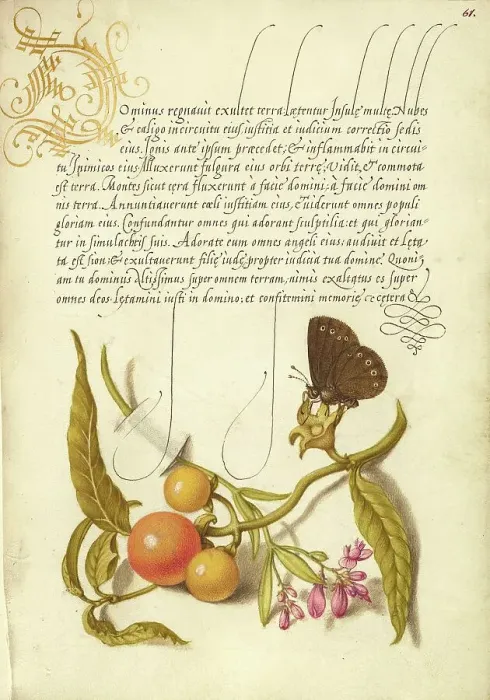 61.
Dominus regnavit exultet terra: Lętentur Insulę multę. Nubes
& caligo in circuitu eius: iustitia et iudicium correctio sedis
eius. Ignis ante ipsum præcedet, & inflammabit in circui-
tu Inimicos eius. Illuxerunt fulgura eius orbi terrę: Vidit, & commota
est terra. Montes sicut cęra fluxerunt a facie domini: a facie domini om
nis terra. Annuntiauerunt cæli iustitiam eius, & viderunt omnes populi
gloriam eius. Confundantur omnes qui adorant sculptilia: et qui glorian-
tur in simulachris suis. Adorate eum omnes angeli eius: audiuit et Lęta-
ta est sion: & exultauerunt filię iudę, propter iudicia tua domine. Quoni-
am tu dominus altissimus super omnem terram, nimis exaltatus es super
omnes deos. Lętamini iusti in domino: et confitemini memorię